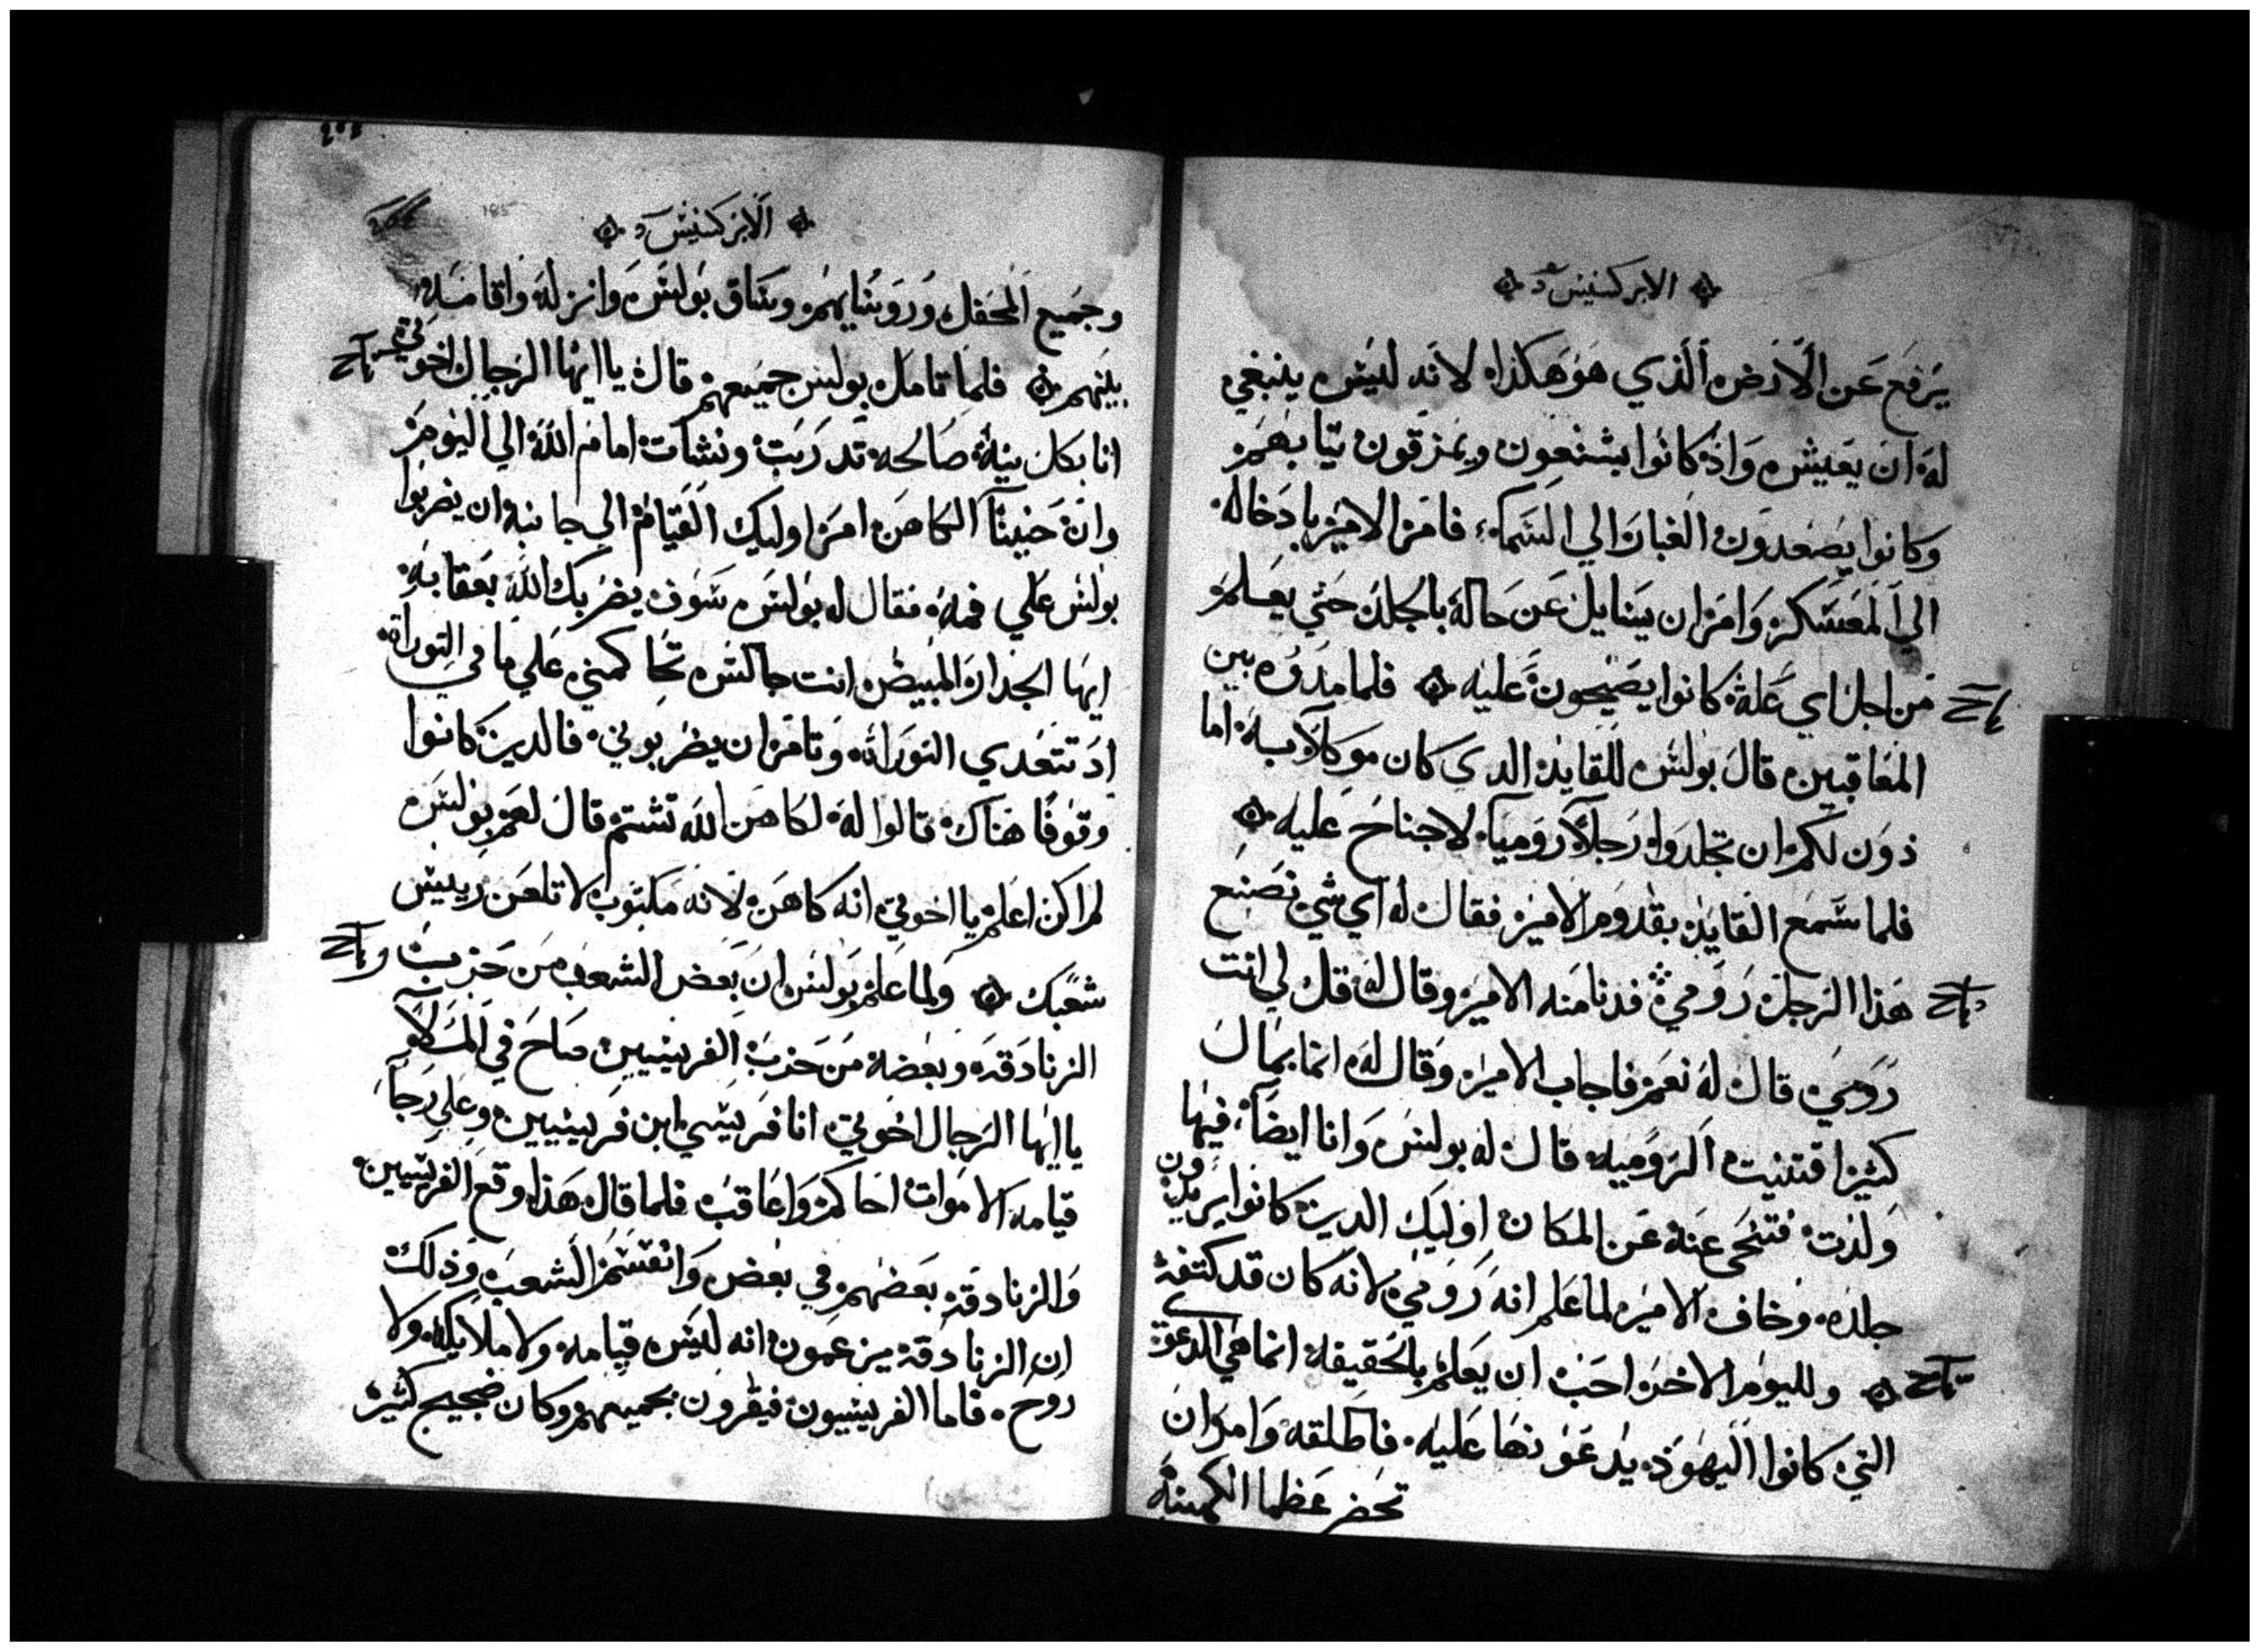 الابركسيس
يرفع عن الارض الذي هو هكذا لانه ليس ينبغي
له ان يعيش واذ كانوا يشنعون ويمزقون تيابهم
وكانوا يصعدون الغبار الي السماء فامر الامير بادخاله
الي المعسكر وامر ان يسايل عن حاله بالجلد حتي يعلم
من اجل اي علة كانوا يصيحون عليه فلما مدوه بين
المعاقبين قال بولس للقايد الدي كان موكلا به اما
ذون لكم ان تجلدوا رجلا روميا لا جناح عليه
فلما سمع القايد بقدوم الامير فقال له اي شي نصنع
هذا الرجل رومي فدنا منه الامير وقال له قل لي انت
رومي قال له نعم فاجاب الامير وقال له انما بمال
كثير اقتنيت الروميه قال له بولس وانا ايضا فيها
ولدت فتنحى عنه عن المكان اوليك الدين كانوا يريدون
جلده وخاف الامير لما علم انه رومي لانه كان قد كتفه
ولليوم الاخر احب ان يعلم بالحقيقه انما هي الدعوة
التي كانوا اليهود يدعونها عليه فاطلقه وامر ان
تحضر عظما الكهنة
الابركسيس
وجميع المحفل وروسايهم وساق بولس وانزله واقامه
بينهم فلما تامل بولس جميعهم قال يا ايها الرجال اخوتي
انا بكل نية صالحه تدربت ونشات امام الله الي اليوم
وان حنينا الكاهن امر اوليك القيام الي جانبه ان يضربوا
بولس علي فمه فقال له بولس سوف يضربك الله بعقابه
ايها الجدار المبيض انت جالس تحاكمني علي ما في التوراة
اد تتعدي التوراه وتامر ان يضربوني فالدين كانوا
وقوفا هناك قالوا له لكاهن الله تشتم قال لهم بولس
لم اكن اعلم يا اخوتي انه كاهن لانه مكتوب لا تلعن رييس
شعبك ولما علم بولس ان بعض الشعب من حزب
الزنادقه وبعضه من حزب الفريسيين صاح في الملا
يا ايها الرجال اخوتي انا فريسي ابن فريسيين وعلي رجا
قيامه الاموات احاكم واعاقب فلما قال هذا وقع الفريسيين
والزنادقه بعضهم في بعض وانقسم الشعب وذلك
ان الزنادقه يزعمون انه ليس قيامه ولا ملايكه ولا
روح فاما الفريسيون فيقرون بجميعهم وكان ضجيج كثير